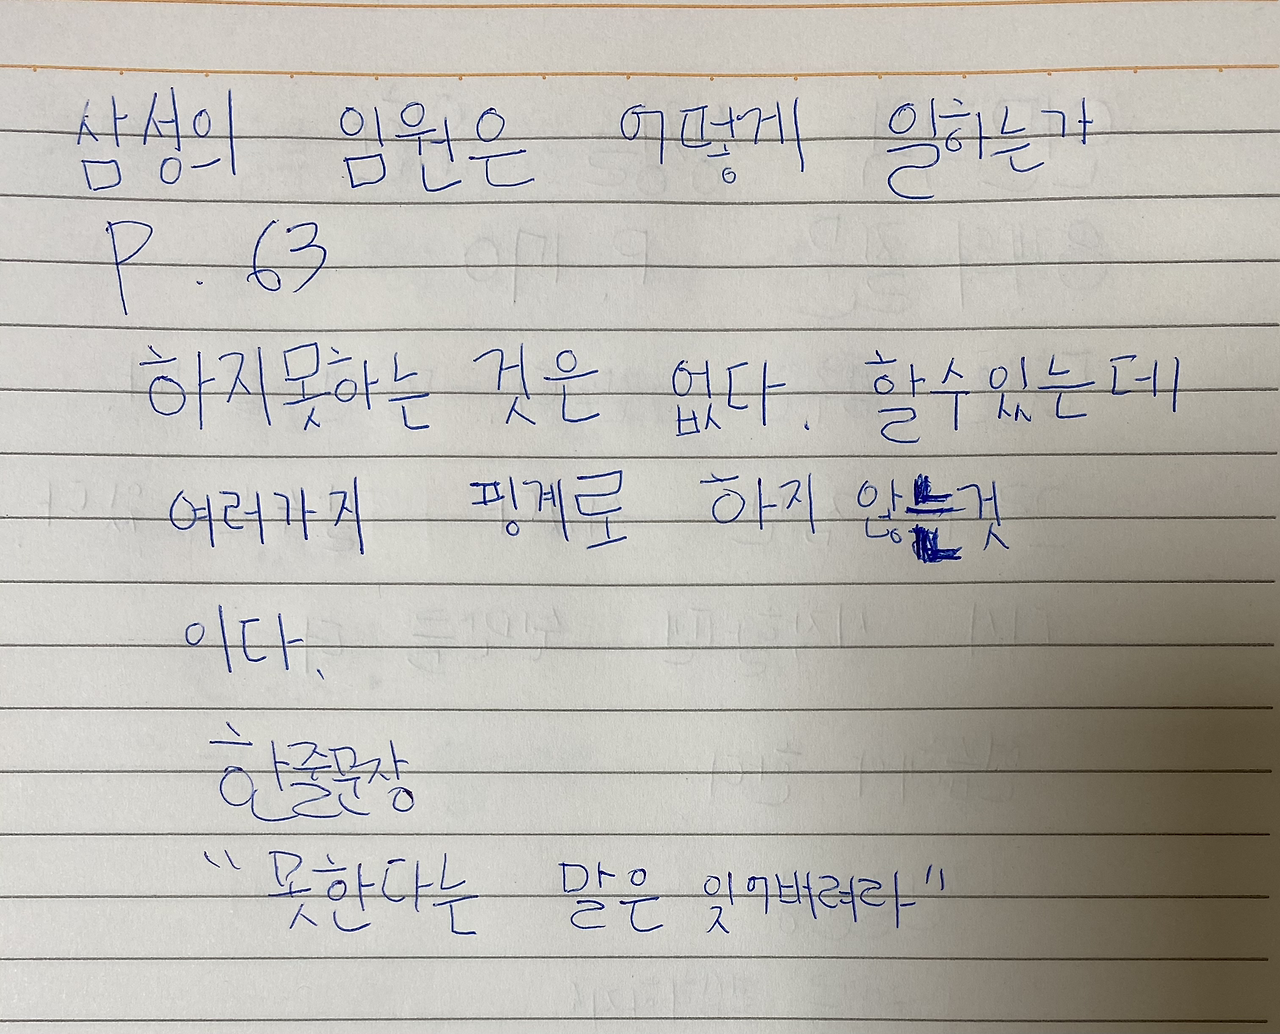 삼성의 임원은 어떻게 일하는가
P. 63
하지못하는 것은 없다. 할수있는데
여러가지 핑계로 하지 않는것
이다.
한줄문장
"못한다는 말은 잊어버려라"